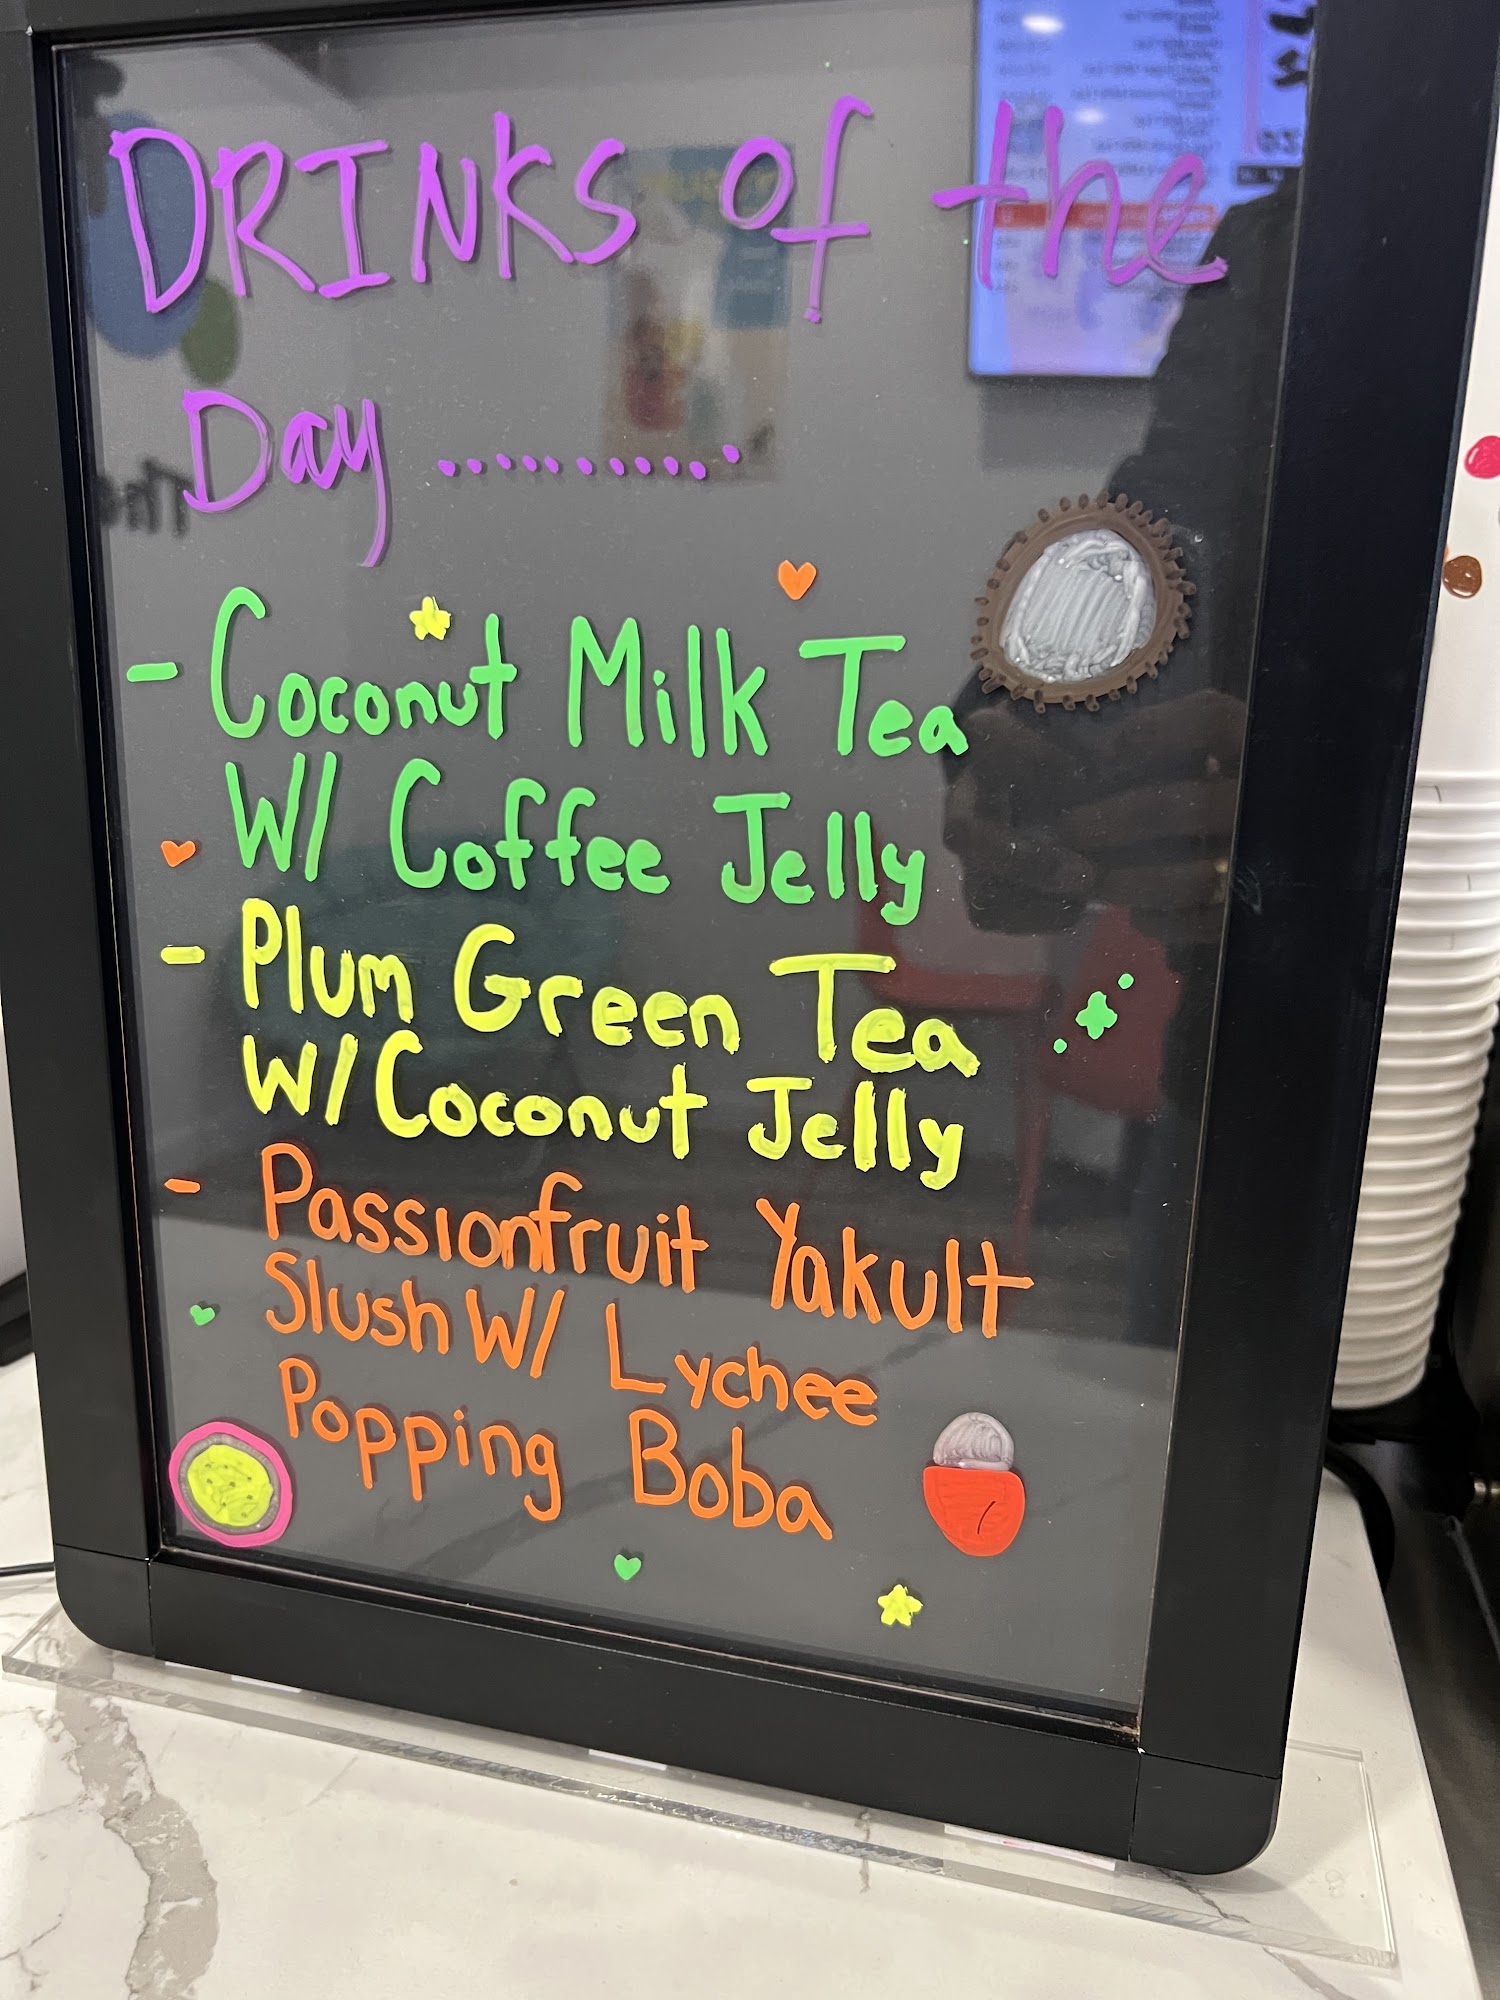 DRINKS of the
Day ...........
- Coconut Milk Tea
W/ Coffee Jelly
- Plum Green Tea
W/ Coconut Jelly
- Passionfruit Yakult
Slush W/ Lychee
Popping Boba